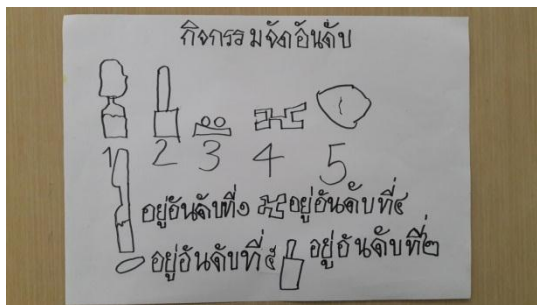 กิจกรรมจัดอันดับ
1 2 3 4 5
อยู่อันดับที่๑ อยู่อันดับที่๔
อยู่อันดับที่๕ อยู่อันดับที่๒